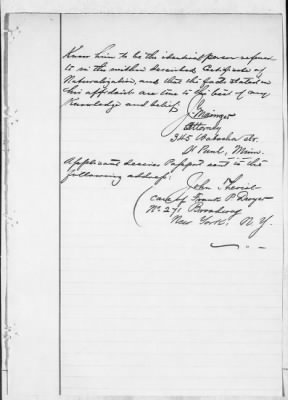 Know him to be the identical person referred
to in the within described Certificate of
Naturalization, and that the facts stated in
his affidavit are true to the best of my
Knowledge and belief.
Attorney
345 Wabasha Str.
St Paul, Minn.
Applicant desires Passport sent to the
following address:
John
Care of Frank P Dwyer
No. 271 Broadway
New York, N.Y.